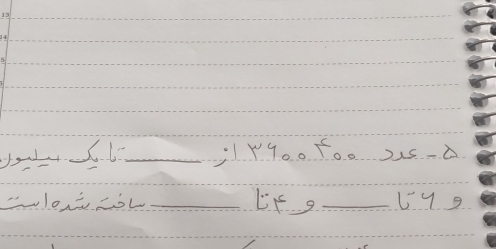 ۵- عدد ۳۶۰۰۴۰۰ از ______ تا یک میلیون
و ۶ تا ______ و ۴ تا ______ ساخته شده است